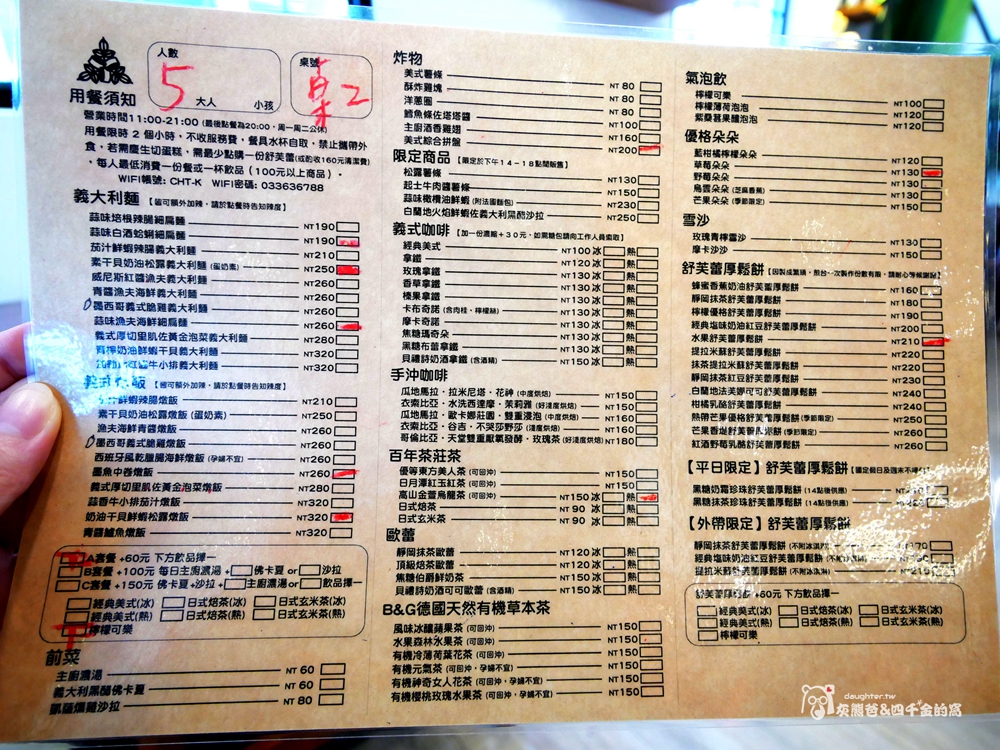 用餐須知
人數 5 大人 小孩
桌號 桌2
營業時間11:00-21:00 (最後點餐為20:00,周一周二公休)
用餐限時 2 個小時,不收服務費,餐具水杯自取,禁止攜帶外
食,若需慶生切蛋糕,需最少點購一份舒芙蕾(或酌收160元清潔費)
,每人最低消費一份餐或一杯飲品(100元以上商品)。
WIFI帳號: CHT-K WIFI密碼: 033636788
義大利麵【皆可額外加辣,請於點餐時告知辣度】
蒜味培根辣腸細扁麵 NT190
蒜味白酒蛤蜊細扁麵 NT190
茄汁鮮蝦辣腸義大利麵 NT210
素干貝奶油松露義大利麵 (蛋奶素) NT250
威尼斯紅醬漁夫義大利麵 NT260
青醬漁夫海鮮義大利麵 NT260
墨西哥義式脆雞義大利麵 NT260
蒜味漁夫海鮮細扁麵 NT260
義式厚切里肌佐黃金泡菜義大利麵 NT280
青檸奶油鮮蝦干貝義大利麵 NT320
牛小排義大利麵 NT320
義式燉飯【皆可額外加辣,請於點餐時告知辣度】
茄汁鮮蝦辣腸燉飯 NT210
素干貝奶油松露燉飯 (蛋奶素) NT250
漁夫海鮮青醬燉飯 NT260
墨西哥義式脆雞燉飯 NT260
西班牙風乾臘腸海鮮燉飯 (孕婦不宜) NT260
墨魚中卷燉飯 NT260
義式厚切里肌佐黃金泡菜燉飯 NT280
蒜香牛小排茄汁燉飯 NT320
奶油干貝鮮蝦松露燉飯 NT320
青醬鱸魚燉飯 NT320
A套餐 +60元 下方飲品擇一
B套餐 +100元 每日主廚濃湯+ 佛卡夏 or 沙拉
C套餐 +150元 佛卡夏+沙拉+ 主廚濃湯 or 飲品擇一
經典美式(冰) 日式焙茶(冰) 日式玄米茶(冰)
經典美式(熱) 日式焙茶(熱) 日式玄米茶(熱)
檸檬可樂
前菜
主廚濃湯 NT 60
義大利黑醋佛卡夏 NT 60
凱薩燻雞沙拉 NT 80
炸物
美式薯條 NT 80
酥炸雞塊 NT 80
洋蔥圈 NT 80
鱈魚條佐塔塔醬 NT100
主廚酒香雞翅 NT160
美式綜合拼盤 NT200
限定商品【限定於下午14-18點間販售】
松露薯條 NT130
起士牛肉醬薯條 NT150
蒜味橄欖油鮮蝦 (附法國麵包) NT230
白蘭地火焰鮮蝦佐義大利黑醋沙拉 NT250
義式咖啡【加一份濃縮+30元,如需糖包請向工作人員索取】
經典美式 NT100 冰 熱
拿鐵 NT120 冰 熱
玫瑰拿鐵 NT130 冰 熱
香草拿鐵 NT130 冰 熱
榛果拿鐵 NT130 冰 熱
卡布奇諾 (含肉桂、檸檬絲) NT130 冰 熱
摩卡奇諾 NT130 冰 熱
焦糖瑪奇朵 NT130 冰 熱
黑糖布蕾拿鐵 NT130 冰 熱
貝禮詩奶酒拿鐵 (含酒精) NT150 冰 熱
手沖咖啡
瓜地馬拉・拉米尼塔・花神 (中度烘焙) NT150
衣索比亞・水洗西達摩・茉莉雅 (好淺度烘焙) NT150
瓜地馬拉・歐卡娜莊園・雙重浸泡 (中度烘焙) NT160
衣索比亞・谷吉・不哭莎野莎 (淺度烘焙) NT160
哥倫比亞・天堂雙重厭氧發酵・玫瑰茶 (好淺度烘焙) NT180
百年茶莊茶
優等東方美人茶 (可回沖) NT150
日月潭紅玉紅茶 (可回沖) NT150
高山金萱烏龍茶 (可回沖) NT150 冰 熱
日式焙茶 NT 90 冰 熱
日式玄米茶 NT 90 冰 熱
歐蕾
靜岡抹茶歐蕾 NT120 冰 熱
頂級焙茶歐蕾 NT120 冰 熱
焦糖伯爵鮮奶茶 NT150 冰 熱
貝禮詩奶酒可可歐蕾 (含酒精) NT150 冰 熱
B&G德國天然有機草本茶
風味冰釀蘋果茶 (可回沖) NT150
水果森林水果茶 (可回沖) NT150
有機冷薄荷葉花茶 (可回沖) NT150
有機元氣茶 (可回沖,孕婦不宜) NT150
有機神奇女人花茶 (可回沖,孕婦不宜) NT150
有機櫻桃玫瑰水果茶 (可回沖,孕婦不宜) NT150
氣泡飲
檸檬可樂 NT100
檸檬薄荷泡泡 NT120
紫桑葚果釀泡泡 NT120
優格朵朵
藍柑橘檸檬朵朵 NT120
草莓朵朵 NT130
野莓朵朵 NT130
烏雲朵朵 (芝麻香蕉) NT130
芒果朵朵 (季節限定) NT150
雪沙
玫瑰青檸雪沙 NT130
摩卡沙沙 NT150
舒芙蕾厚鬆餅【因製成繁瑣,煎台一次製作份數有限,請耐心等候謝謝】
蜂蜜香蕉奶油舒芙蕾厚鬆餅 NT160
靜岡抹茶舒芙蕾厚鬆餅 NT180
檸檬優格舒芙蕾厚鬆餅 NT190
經典塩味奶油紅豆舒芙蕾厚鬆餅 NT200
水果舒芙蕾厚鬆餅 NT210
提拉米蘇舒芙蕾厚鬆餅 NT220
抹茶提拉米蘇舒芙蕾厚鬆餅 NT220
靜岡抹茶紅豆舒芙蕾厚鬆餅 NT230
白蘭地法芙娜可可舒芙蕾厚鬆餅 NT240
柑橘乳酪舒芙蕾厚鬆餅 NT240
熱帶芒果優格舒芙蕾厚鬆餅 (季節限定) NT250
芒果香堤舒芙蕾厚鬆餅 (季節限定) NT260
紅酒野莓乳酪舒芙蕾厚鬆餅 NT260
【平日限定】舒芙蕾厚鬆餅
黑糖奶霜珍珠舒芙蕾厚鬆餅 (14點後供應)
黑糖抹茶珍珠舒芙蕾厚鬆餅 (14點後供應)
【外帶限定】舒芙蕾厚鬆餅
靜岡抹茶舒芙蕾厚鬆餅 (不附冰淇淋)
經典塩味奶油紅豆舒芙蕾厚鬆餅
提拉米蘇舒芙蕾厚鬆餅 (不附冰淇淋)
舒芙蕾厚鬆餅 +60元 下方飲品擇一
經典美式(冰) 日式焙茶(冰) 日式玄米茶(冰)
經典美式(熱) 日式焙茶(熱) 日式玄米茶(熱)
檸檬可樂
daughter.tw
灰熊爸&四千金的窩